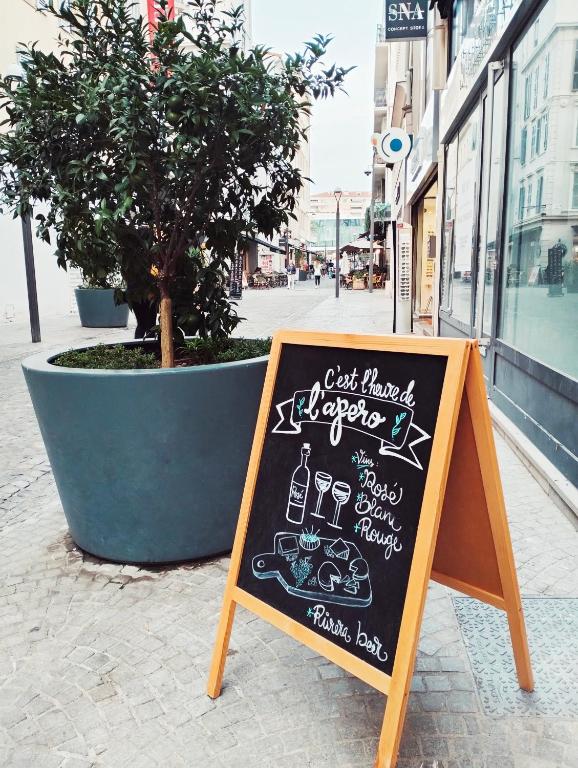 SNA
CONCEPT STORE
C'est l'heure de
l'apero
Vins:
Rosé
Blanc
Rouge
Rosé
Riviera beer